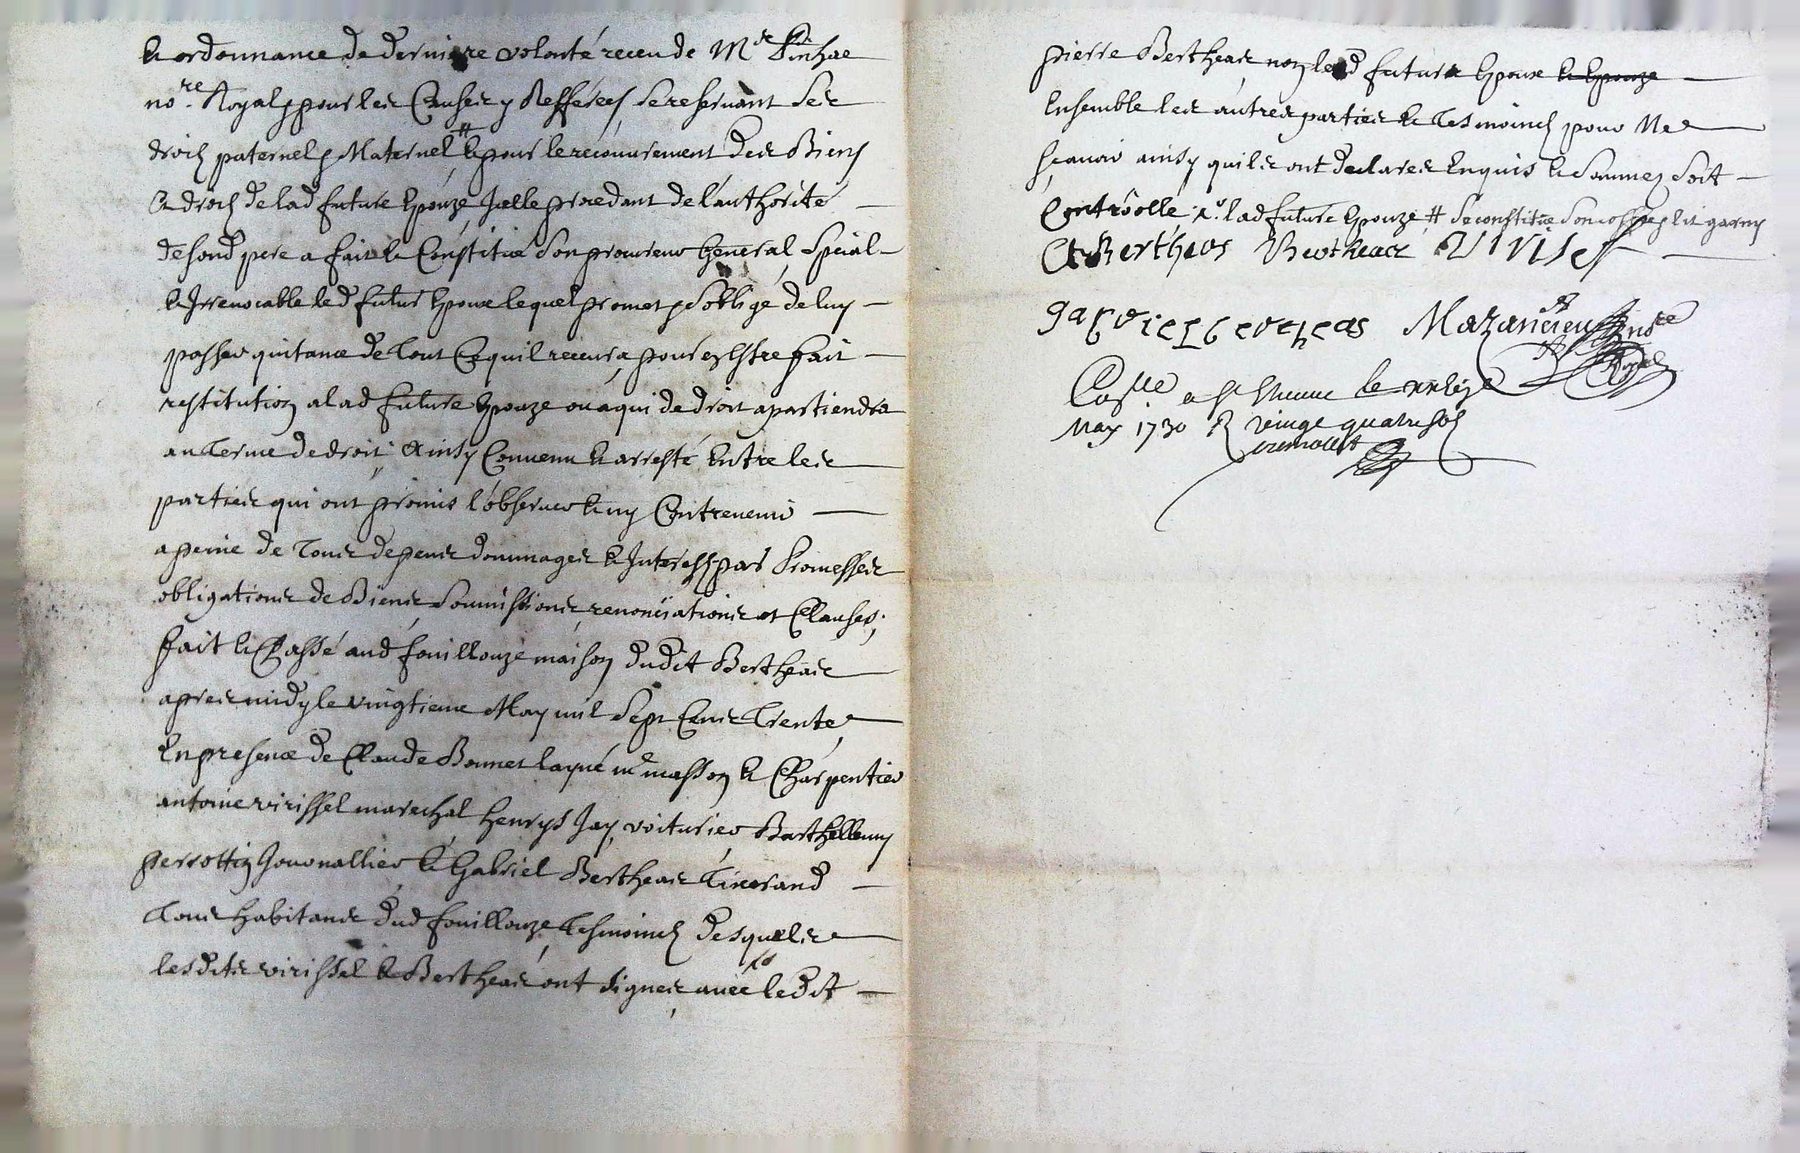 et ordonnance de derniere volonté receu de Mre
nore Royal pour les Causes y Refferées, se reservant ses
droits paternels Maternel # et pour le recouvrement des Biens
et droits de lad future Epouze Icelle procedant de l'authorité
de sond pere a fait et Constitué son procureur General, Special
et Irrevocable led futur Epoux lequel promet, s'oblige de luy
passer quitance de tout Ce quil recevra, pour en Estre fait
restitution a lad future Epouze ou a qui de droit apartiendra
au terme de droit, Ainsy Convenu et arresté Entre les
parties qui ont promis l'observer et ny Contrevenir
a peine de tous depens dommages et Interests par Promesses
obligations de Biens, soumissions, renonciations et Clauses;
fait et Passé aud fouillouze maison dudit Bertheas
apres midy le vingtieme May mil sept Cens trente
En presence de Claude Bonnet layné me masson et Charpentier
antoine virissel marechal henrys Jay, voiturier, Barthellemy
perrottin Journallier et Gabriel Bertheas tixerand
tous habitans dud fouillouze, tesmoins desquels
lesdits virissel et Bertheas ont signes, avec ledit
pierre Bertheas non led future Epoux et Epouze
Ensemble les autres parties et tesmoins pour Ne
sçavoir ainsy quils ont declares Enquis et sommes soit
Controolle, lad future Epouze # se constitue son coffre lit garny
Bertheas Bertheas Virisel
gabriel bertheas Mazancieu nore
Conlle a st Etienne le
May 1730 R vingt quatre sols